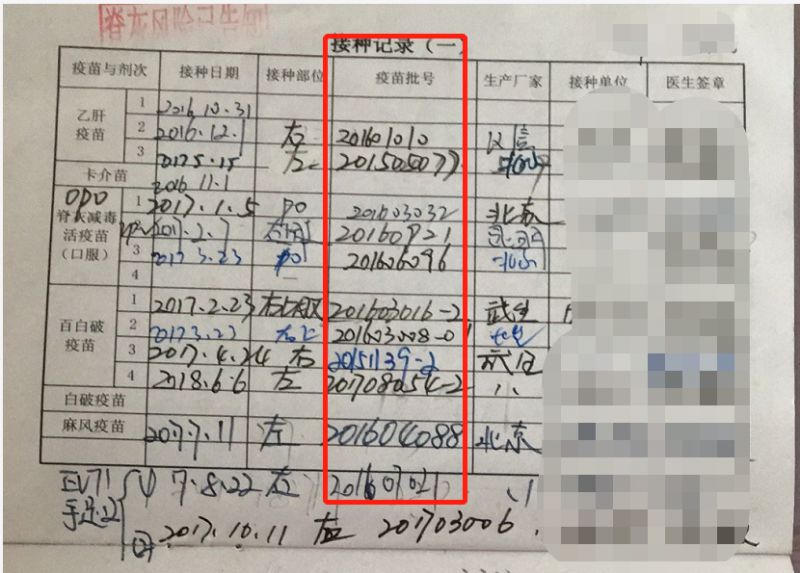 脊灰风险已告知
接种记录（一
疫苗与剂次 接种日期 接种部位 疫苗批号 生产厂家 接种单位 医生签章
乙肝疫苗 1 2016.10.31
2 2016.12.1 右 201601010 汉信
3 2017.5.15 左 2015050
卡介苗 2016.11.1
脊灰减毒活疫苗（口服） 1 2017.1.5 PO 201603032 北京
2 2017.2.7
3 2017.3.23 PO 201606096 北京
4
百白破疫苗 1 2017.2.23 201603016-2 武生
2 2017.3.23 201603008-01
3 2017.4.24 右 20151139-2 武生
4 2018.6.6 左 201708054-2 〃
白破疫苗
麻风疫苗 2017.7.11 左 201604088 北京
EV71 ① 7.8.22 左
② 2017.10.11 左 201703006